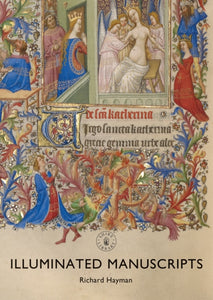 De sca̅ katherina
Virgo sancta katherina
grecie gemma urbe alex
ILLUMINATED MANUSCRIPTS
Richard Hayman